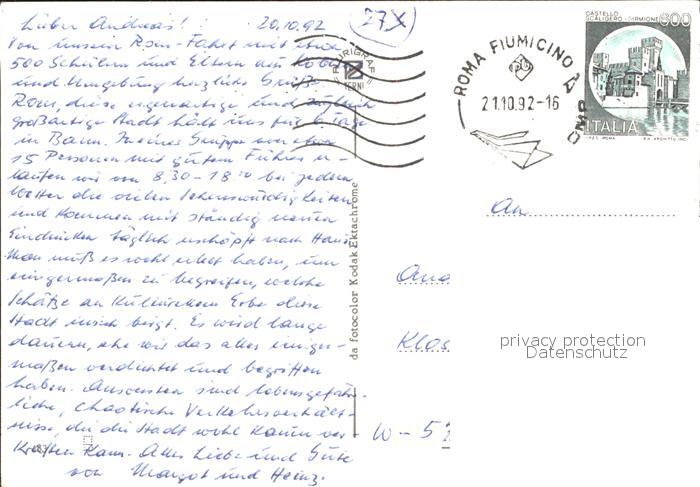 Lieber Andreas! 20.10.92
27X
Von unserer Rom-Fahrt mit etwa
500 Schülern und Eltern aus
und Umgebung herzliche Grüße.
Rom, diese eigenartige und
großartige Stadt hält uns für 6 Tage
in Bann. In einer Gruppe von etwa
15 Personen mit gutem Führer er-
laufen wir von 8,30 - 18 30 bei jedem
Wetter die vielen Sehenswürdigkeiten
und kommen mit ständig neuen
Eindrücken täglich erschöpft nach Hause
Man muß es wohl erlebt haben, um
einigermaßen zu begreifen, welche
Schätze an kulturellem Erbe diese
Stadt in sich birgt. Es wird lange
dauern, ehe wir das alles einiger-
maßen verdichtet und begriffen
haben. Ansonsten sind lebensgefähr-
liche, chaotische Verkehrsverhält-
nisse, die die Stadt wohl kaum ver
kraften kann. Alles Liebe und Gute
von Margot und Heinz.
PLURIGRAF
TERNI
da fotocolor Kodak Ektachrome
ROMA FIUMICINO A
CMP
21.10.92-16
CASTELLO
SCALIGERO - SIRMIONE
600
ITALIA
An
And
Klos
W - 52
privacy protection
Datenschutz